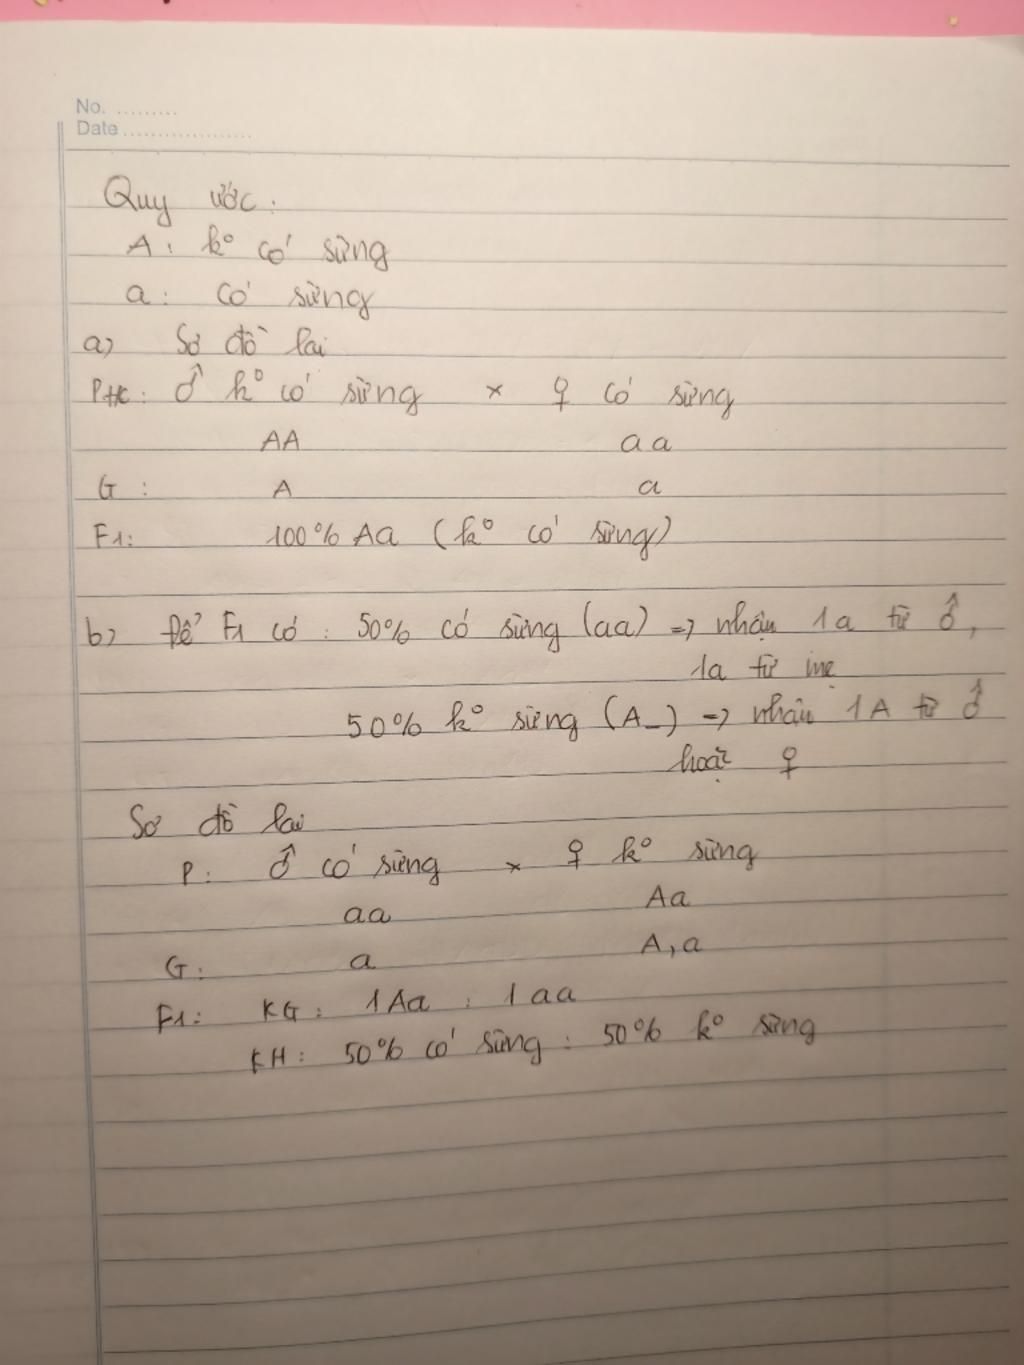 No. .........
Date ...................
Quy ước:
A: kº có sừng
a: có sừng
a) Sơ đồ lai
PTC: ♂ kº có sừng × ♀ có sừng
AA aa
G: A a
F1: 100% Aa (kº có sừng)
b) Để F1 có: 50% có sừng (aa) => nhận 1a từ ♂,
1a từ mẹ
50% kº sừng (A_) => nhận 1A từ ♂
hoặc ♀
Sơ đồ lai
P: ♂ có sừng × ♀ kº sừng
aa Aa
G: a A, a
F1: KG: 1Aa : 1aa
KH: 50% có sừng : 50% kº sừng